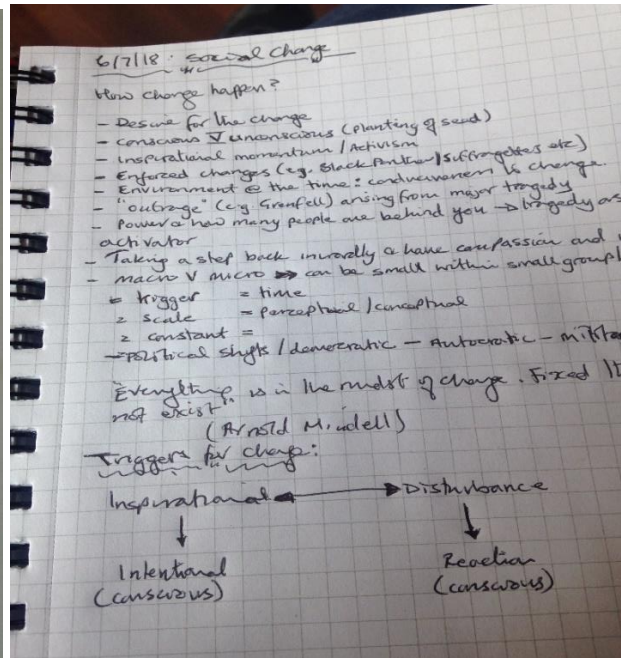 6/7/18: social change
How change happen?
- Desire for the change
- conscious V unconscious (planting of seed)
- Inspirational momentum / Activism
- Enforced changes (eg. Black Panther / Suffragettes etc)
- Environment @ the time: conduciveness to change.
- "outrage" (e.g Grenfell) arising from major tragedy
- Power & how many people are behind you → tragedy as
activator
- Taking a step back inwardly & have compassion and
- macro V micro → can be small within small group
= trigger = time
= scale = perceptual / conceptual
= constant =
- Political shifts / democratic - Autocratic -
"Everything is in the midst of change. Fixed
not exist"
(Arnold Mindell)
Triggers for change:
Inspirational ↔ Disturbance
↓ ↓
Intentional Reaction
(conscious) (conscious)